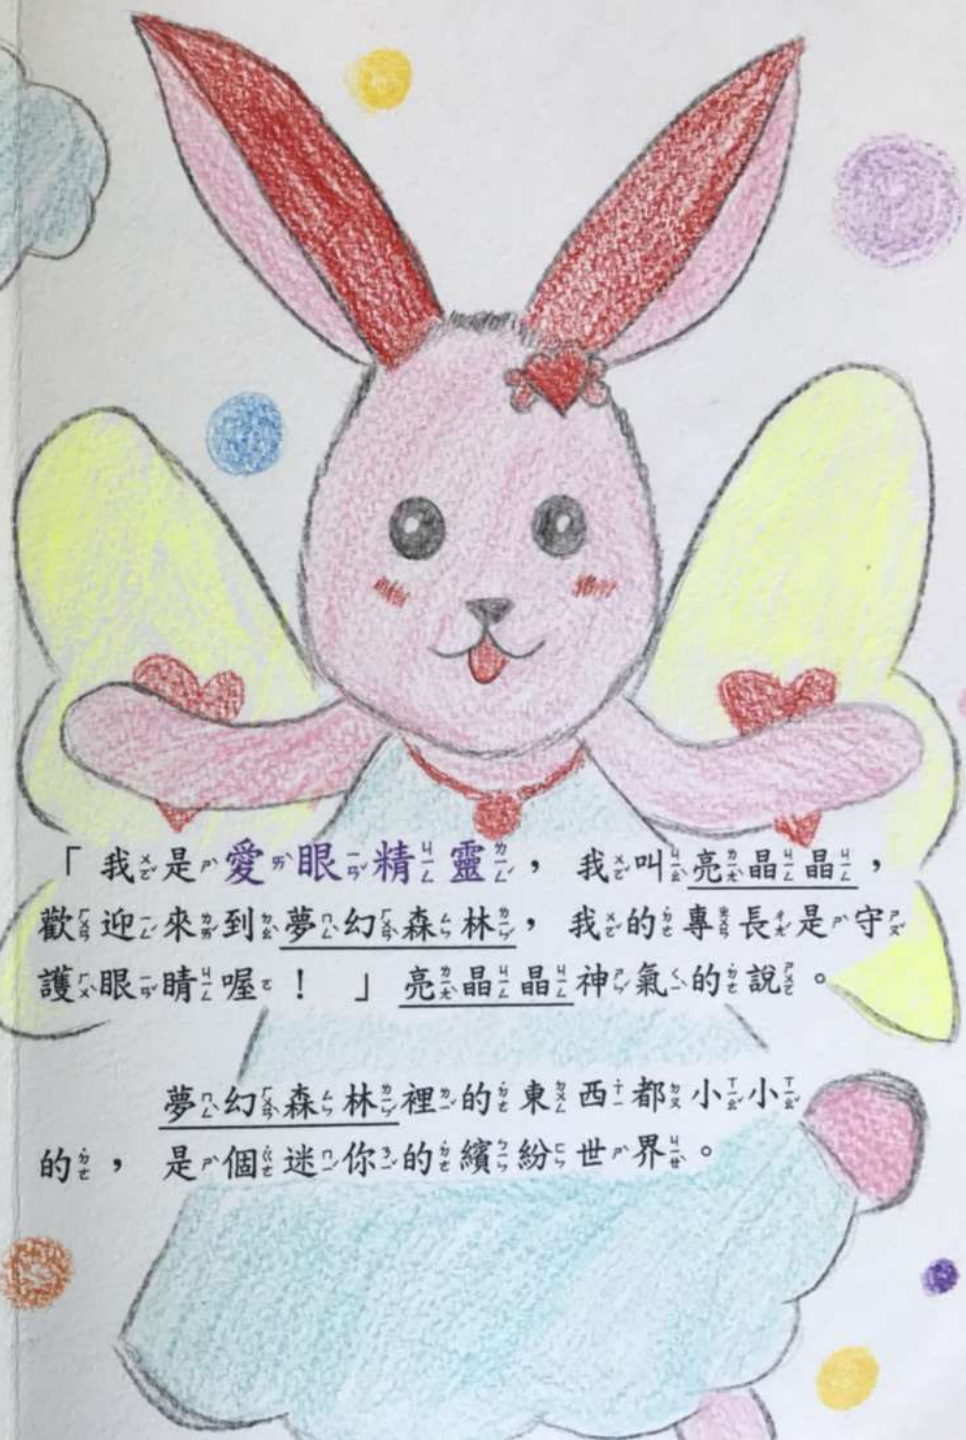 「我是愛眼精靈，我叫亮晶晶，
歡迎來到夢幻森林，我的專長是守
護眼睛喔！」亮晶晶神氣的說。
夢幻森林裡的東西都小小
的，是個迷你的繽紛世界。